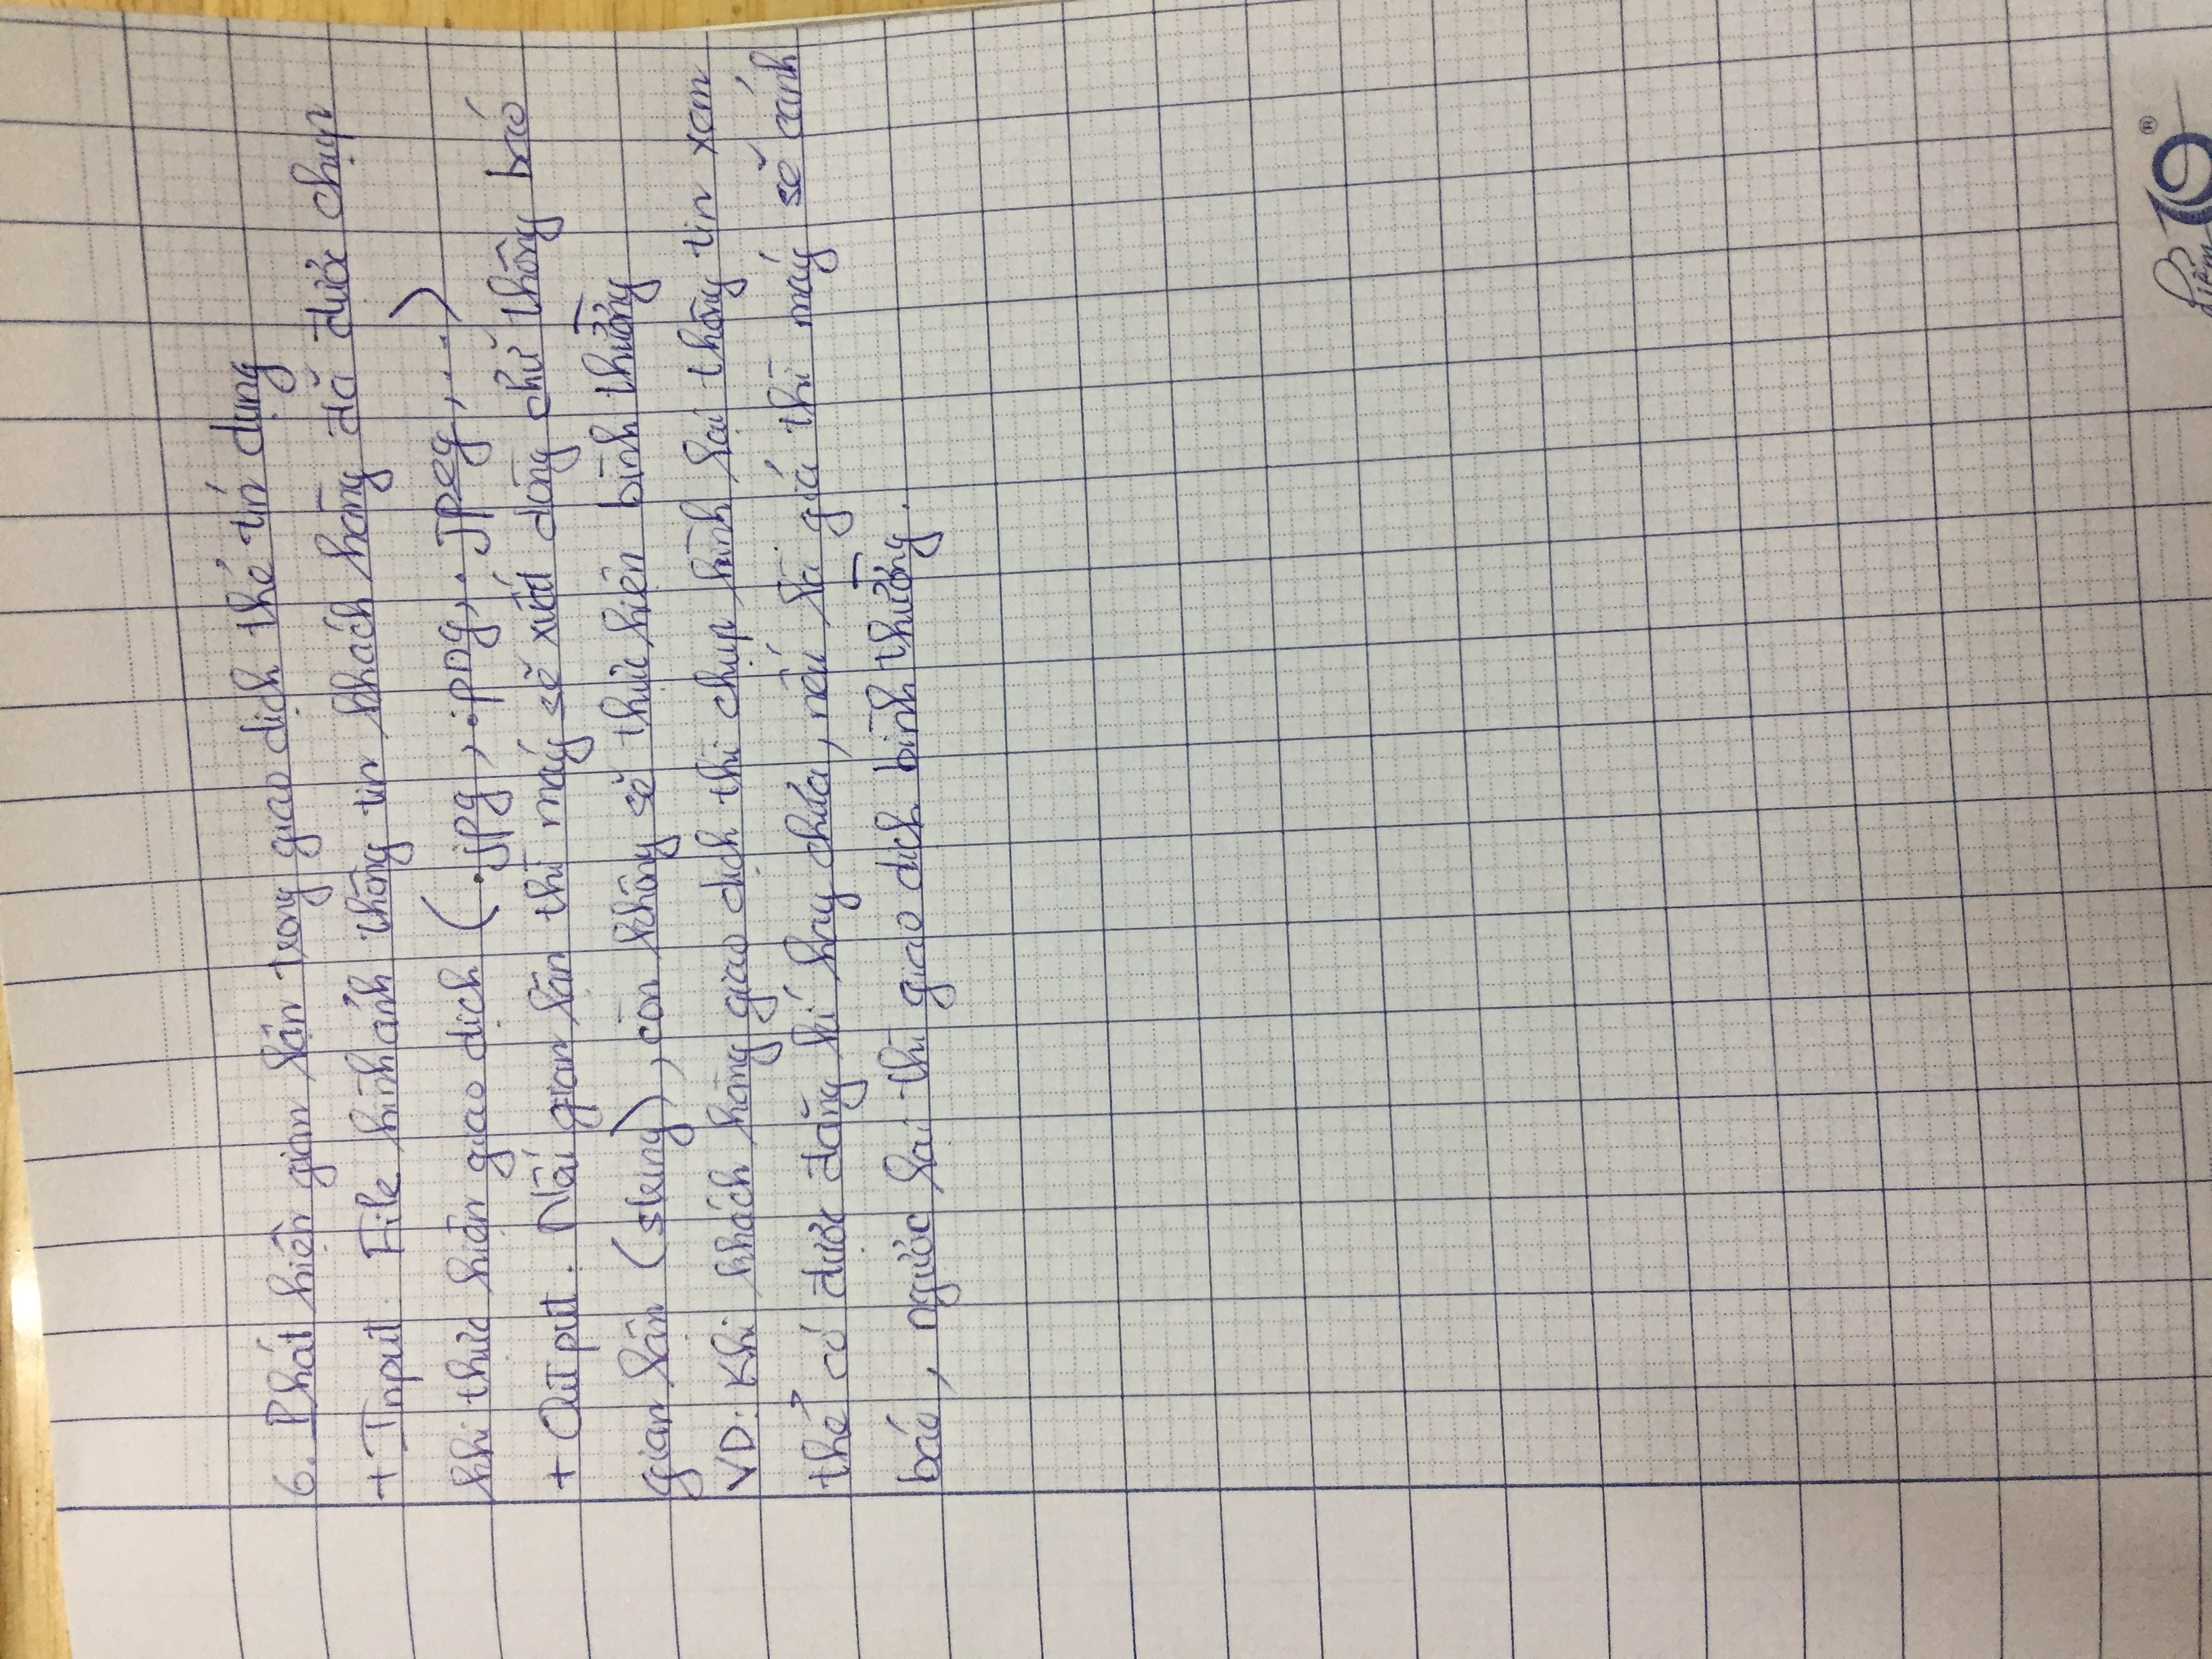 6. Phát hiện gian lận trong giao dịch thẻ tín dụng
+ Input. File hình ảnh thông tin khách hàng đã được chụp
khi thực hiện giao dịch (.jpg, .png, .jpeg, ...)
+ Output. Nếu gian lận thì máy sẽ xuất dòng chữ thông báo
gian lận (string), còn không sẽ thực hiện bình thường
VD: Khi khách hàng giao dịch thì chụp hình lại thông tin xem
thẻ có được đăng kí hay chưa, nếu là giả thì máy sẽ cảnh
báo, ngược lại thì giao dịch bình thường.
Điểm 10 ®